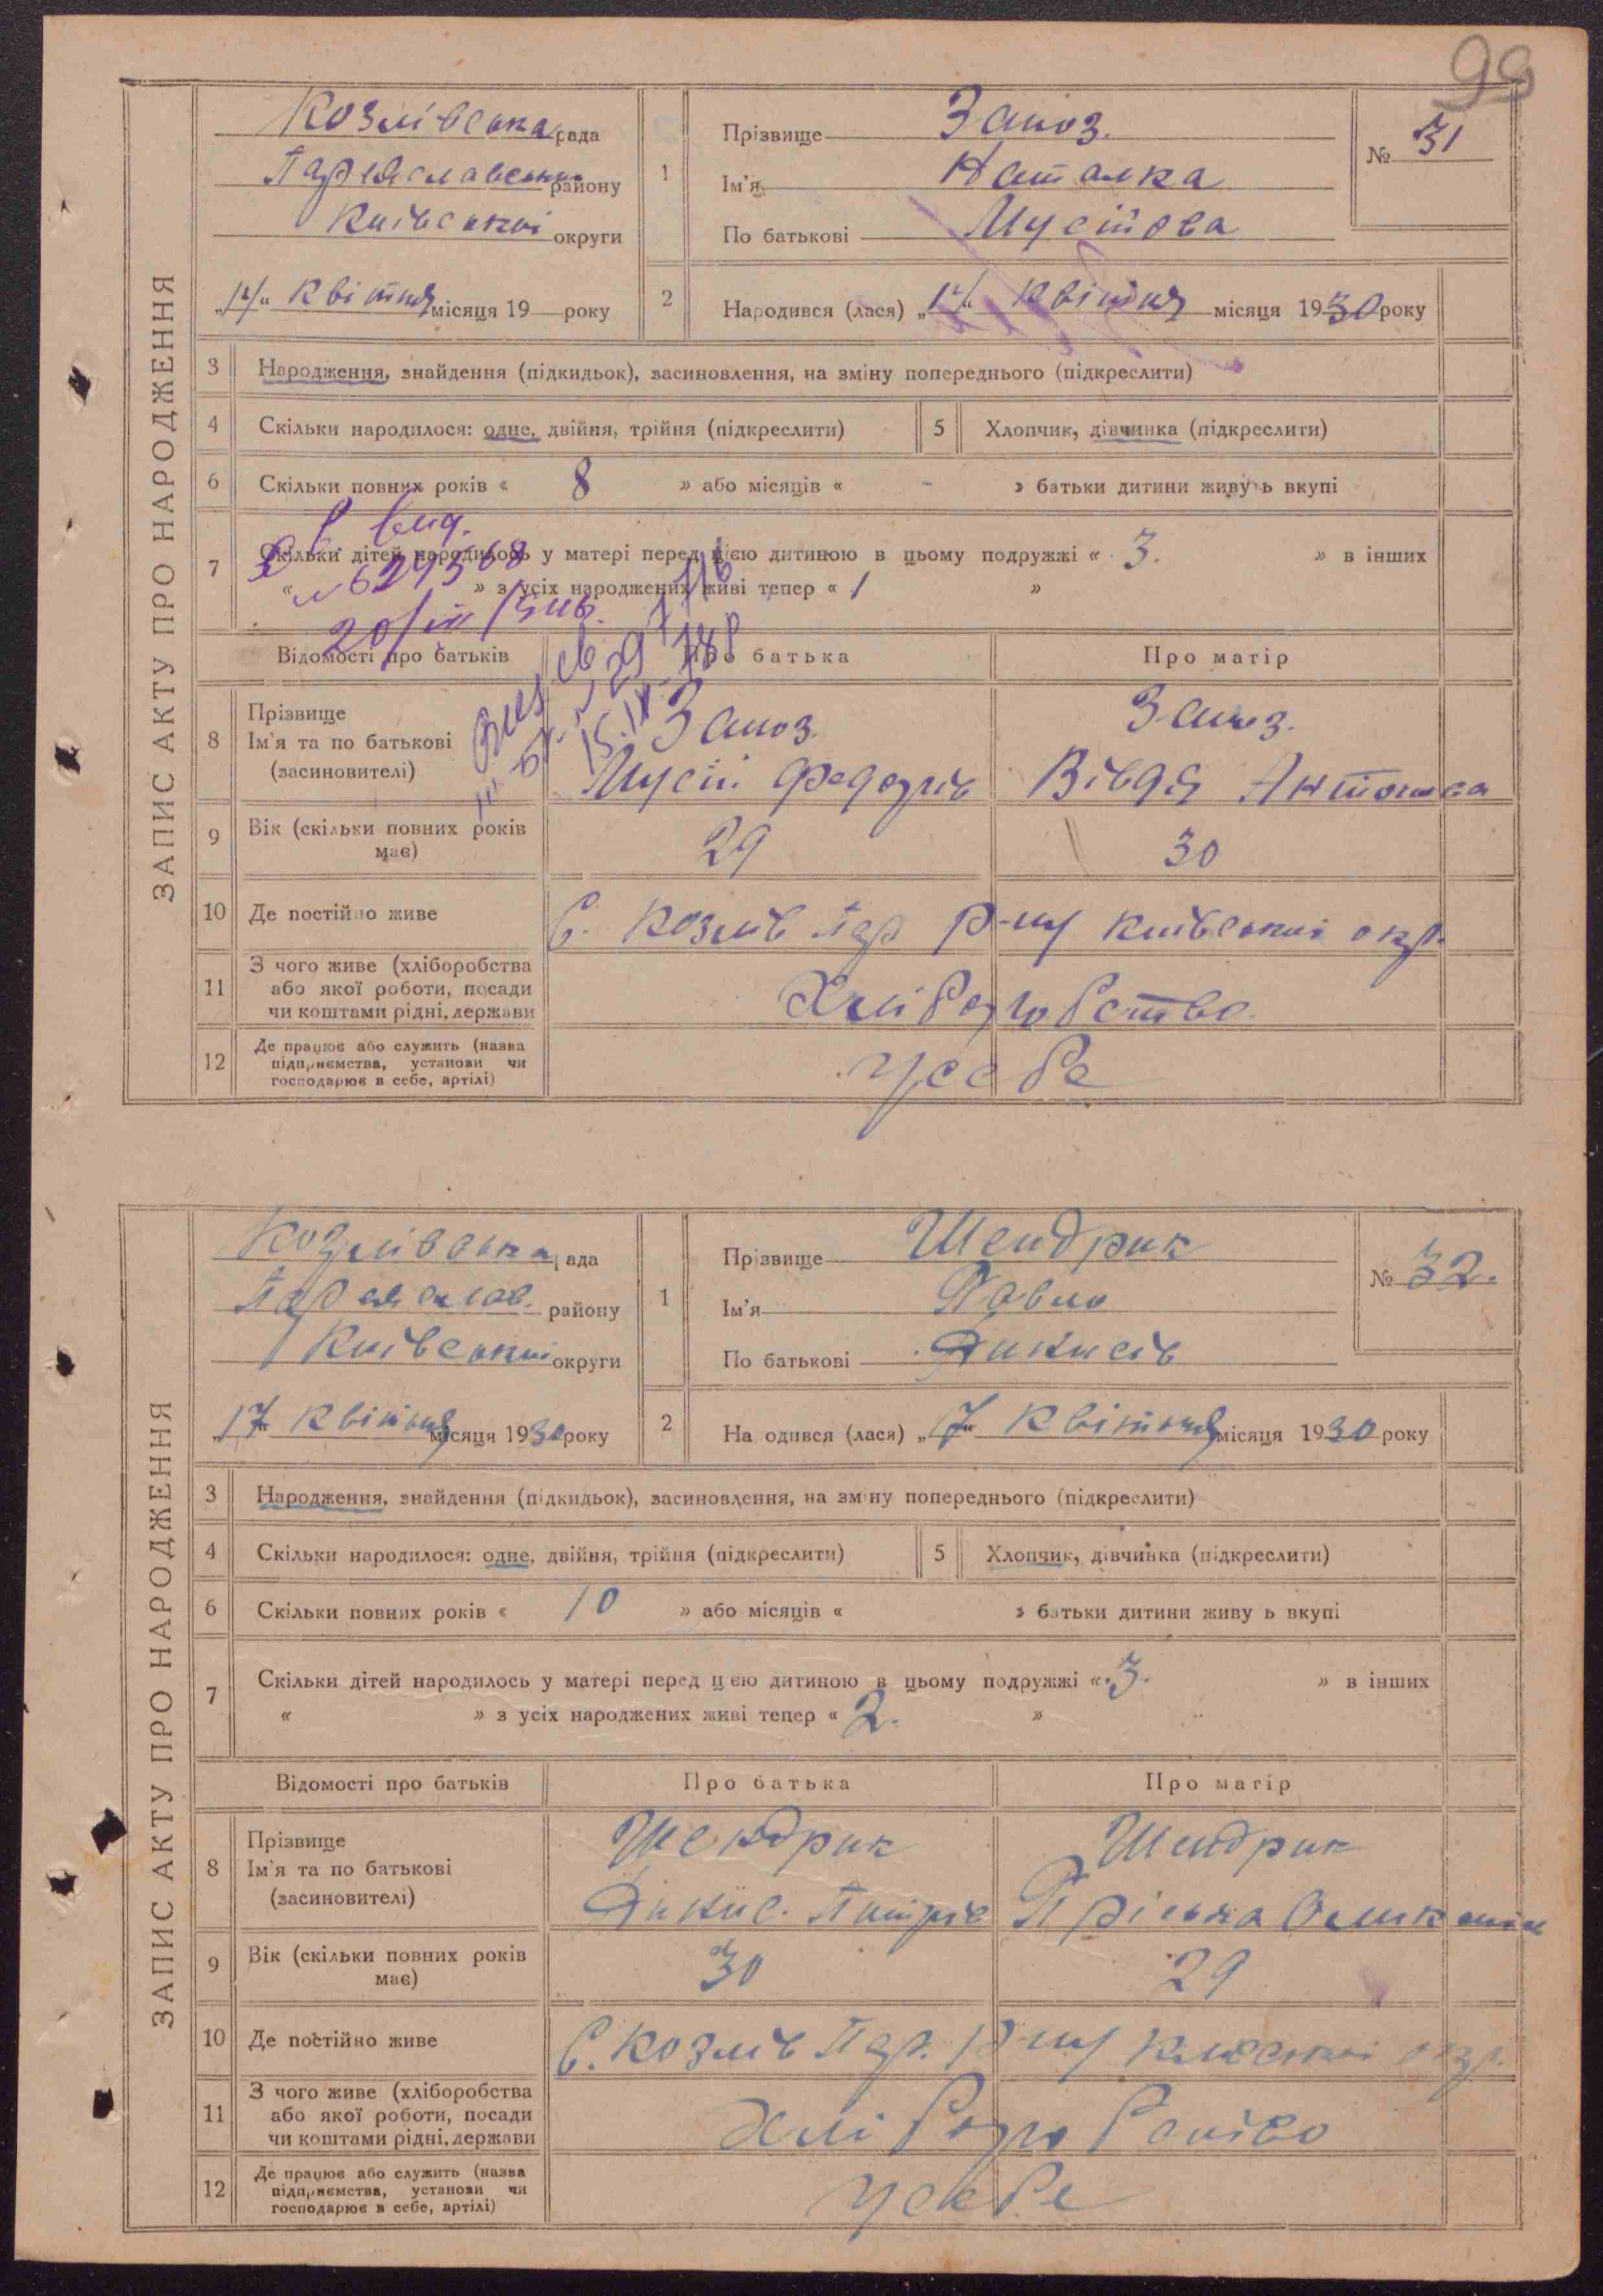 99
ЗАПИС АКТУ ПРО НАРОДЖЕННЯ
Козлівська рада
района
Київської округи
„14“ квітня місяця 19 року
1
Прізвище Запоз.
Ім'я Наталка
По батькові Мусіївва
№ 31
2
Народився (лася) „14“ квітня місяця 1930 року
3 Народження, знайдення (підкидьок), засиновлення, на зміну попереднього (підкреслити)
4 Скільки народилося: одне, двійня, трійня (підкреслити)
5 Хлопчик, дівчинка (підкреслити)
6 Скільки повних років « 8 » або місяців « - » батьки дитини живуть вкупі
7 Скільки дітей народилось у матері перед цією дитиною в цьому подружжі « 3. » в інших
« » з усіх народжених живі тепер « 1 »
Відомості про батьків
Про батька
Про матір
8 Прізвище
Ім'я та по батькові
(засиновителі)
Запоз.
Мусій Федорів
Запоз.
Вівдя Антонова
9 Вік (скільки повних років має)
29
30
10 Де постійно живе
С. Козлів Пер р-ну Київської окр.
11 З чого живе (хліборобства
або якої роботи, посади
чи коштами рідні, держави
Хліборобство.
12 Де працює або служить (назва
підприємства, установи чи
господарює в себе, артілі)
у себе
ЗАПИС АКТУ ПРО НАРОДЖЕННЯ
Козлівська рада
району
Київської округи
„17“ квітня місяця 1930 року
1
Прізвище Шендрик
Ім'я Павло
По батькові
№ 32.
2
Народився (лася) „17“ квітня місяця 1930 року
3 Народження, знайдення (підкидьок), засиновлення, на зміну попереднього (підкреслити)
4 Скільки народилося: одне, двійня, трійня (підкреслити)
5 Хлопчик, дівчинка (підкреслити)
6 Скільки повних років « 10 » або місяців « » батьки дитини живуть вкупі
7 Скільки дітей народилось у матері перед цією дитиною в цьому подружжі « 3. » в інших
« » з усіх народжених живі тепер « 2. »
Відомості про батьків
Про батька
Про матір
8 Прізвище
Ім'я та по батькові
(засиновителі)
Шендрик
Шендрик
Пріська
9 Вік (скільки повних років має)
30
29
10 Де постійно живе
С. Козлів Пер. р-ну Київської окр.
11 З чого живе (хліборобства
або якої роботи, посади
чи коштами рідні, держави
Хліборобство
12 Де працює або служить (назва
підприємства, установи чи
господарює в себе, артілі)
у себе